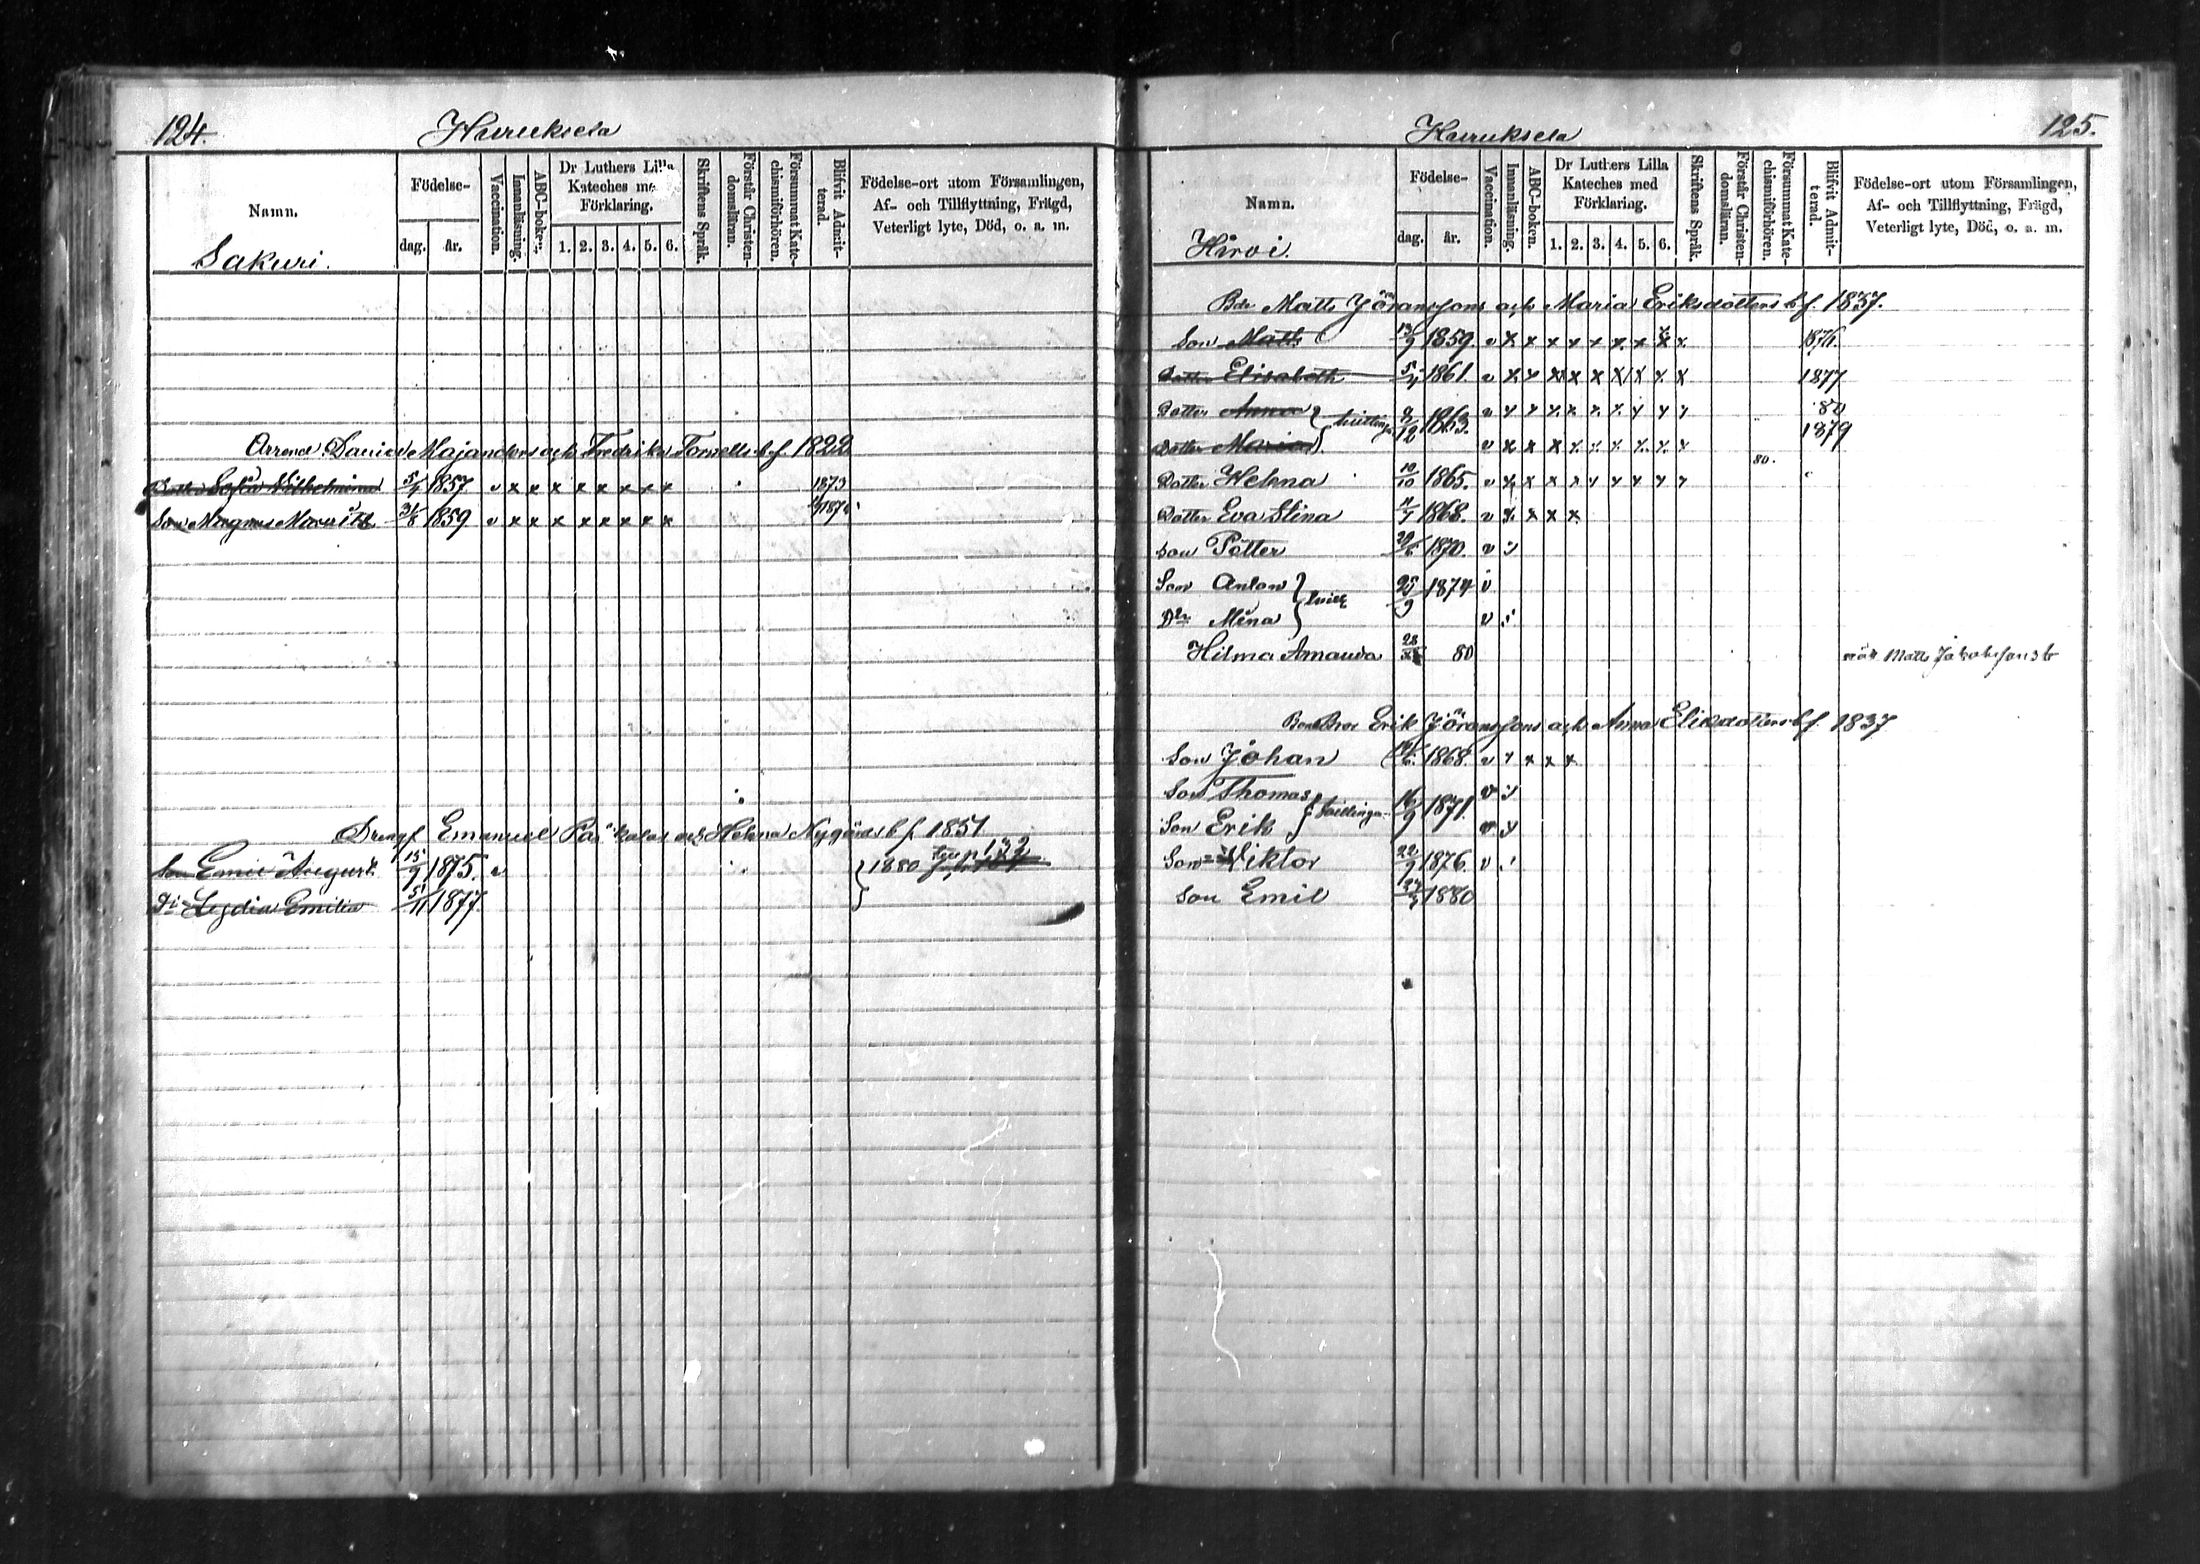 124.
Haruksela
Namn.
Födelse-
dag.
år.
Vaccination.
Innanläsning.
ABC-boken.
Dr Luthers Lilla
Kateches me
Förklaring.
1. 2. 3. 4. 5. 6.
Skriftens Språk.
Förstår Christen-
domsläran.
Försummat Kate-
chismiförhören.
Blifvit Admit-
terad.
Födelse-ort utom Församlingen,
Af- och Tillflyttning, Frägd,
Veterligt lyte, Död, o. a. m.
Sakuri.
Arrend Daniel Majanders och Fredrika b. f. 1822
Dotter Sofia Vilhelmina 5/4 1857 v x x x x x x x x 1873
Son Magnus Mauritz 31/8 1859 v x x x x x x x x
Drengf Emanuel och Helena Nygårds b f. 1851
Son Emil August 15/9 1875. v 1880
Dr Lydia Emilia 5/11 1877.
125.
Haruksela
Namn.
Födelse-
dag.
år.
Vaccination.
Innanläsning.
ABC-boken.
Dr Luthers Lilla
Kateches med
Förklaring.
1. 2. 3. 4. 5. 6.
Skriftens Språk.
Förstår Christen-
domsläran.
Försummat Kate-
chismiförhören.
Blifvit Admit-
terad.
Födelse-ort utom Församlingen,
Af- och Tillflyttning, Frägd,
Veterligt lyte, Död, o. a. m.
Hirvi.
Bdr Matts Jöranssons och Maria Eriksdotters b f. 1837.
Son Matts 13/9 1859. v x x x x x x x x x 1876.
Dotter Elisabeth 1861. v x x x x x x x x x 1877
Dotter Anna 9/12 1863. v x x x x x x x x x 80
Dotter Maria v x x x x x x x x x 1879
80.
Dotter Helena 10/10 1865. v x x x x x x x x x
Dotter Eva Stina 1868. v x x x x
Son Petter 1870. v
Son Anton 25/9 1874 v
Dr Mina v
Hilma Amanda 80 Matts Jakobssons
Bror Erik Jöranssons och Anna b f. 1837
Son Johan 1868. v x x x x
Son Thomas 16/9 1871. v
Son Erik v
Son Wiktor 22/9 1876. v
Son Emil 1880